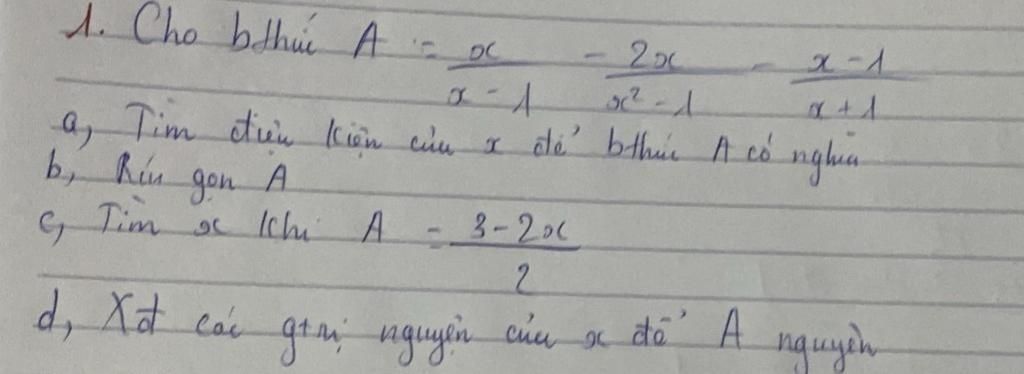 1. Cho bthức A = x/(x - 1) - 2x/(x² - 1) - (x - 1)/(x + 1)
a, Tìm điều kiện của x để bthức A có nghĩa
b, Rút gọn A
c, Tìm x khi A = (3 - 2x)/2
d, Xđ các gtrị nguyên của x để A nguyên